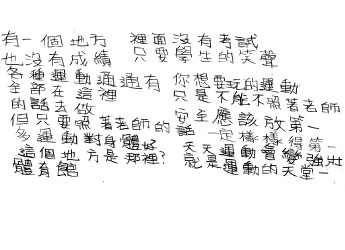 有一個地方　裡面沒有考試
也沒有成績　只要學生的笑聲
各種運動通通有　你想要玩的運動
全部在這裡　只是不能不照著老師
的話去做　安全應該放第一
但只要照著老師的話一定樣樣得第一
多運動對身體好　天天運動會變強壯
這個地方是那裡?　就是運動的天堂—
體育館